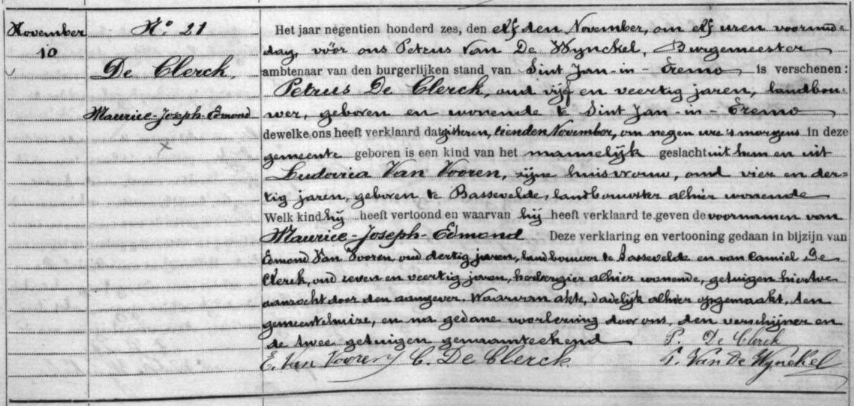 November
10
N.º 21
De Clerck,
Maurice-Joseph-Edmond
Het jaar negentien honderd zes, den elfden November, om elf uren voormid=
dag, vóór ons Petrus Van De Wynckel, Burgemeester
ambtenaar van den burgerlijken stand van Sint Jan-in-Eremo is verschenen:
Petrus De Clerck, oud vijf en veertig jaren, landbou=
wer, geboren en wonende te Sint Jan-in-Eremo
dewelke ons heeft verklaard dat gisteren, tienden November, om negen ure 's morgens in deze
gemeente geboren is een kind van het mannelijk geslacht uit hem en uit
Ludovica Van Vooren, zijne huisvrouw, oud vier en der=
tig jaren, geboren te Bassevelde, landbouwster alhier wonende
Welk kind hij heeft vertoond en waarvan hij heeft verklaard te geven de voornamen van
Maurice-Joseph-Edmond Deze verklaring en vertooning gedaan in bijzijn van
Edmond Van Vooren, oud dertig jaren, landbouwer te Bassevelde en van Camiel De
Clerck, oud zeven en veertig jaren, herbergier alhier wonende, getuigen hiertoe
aanzocht door den aangever. Waarvan akte, dadelijk alhier opgemaakt, ten
gemeentehuize, en na gedane voorlezing door ons, den verschijner en
de twee getuigen genaamteekend
P. De Clerck
E. Van Vooren C. De Clerck P. Van De Wynckel